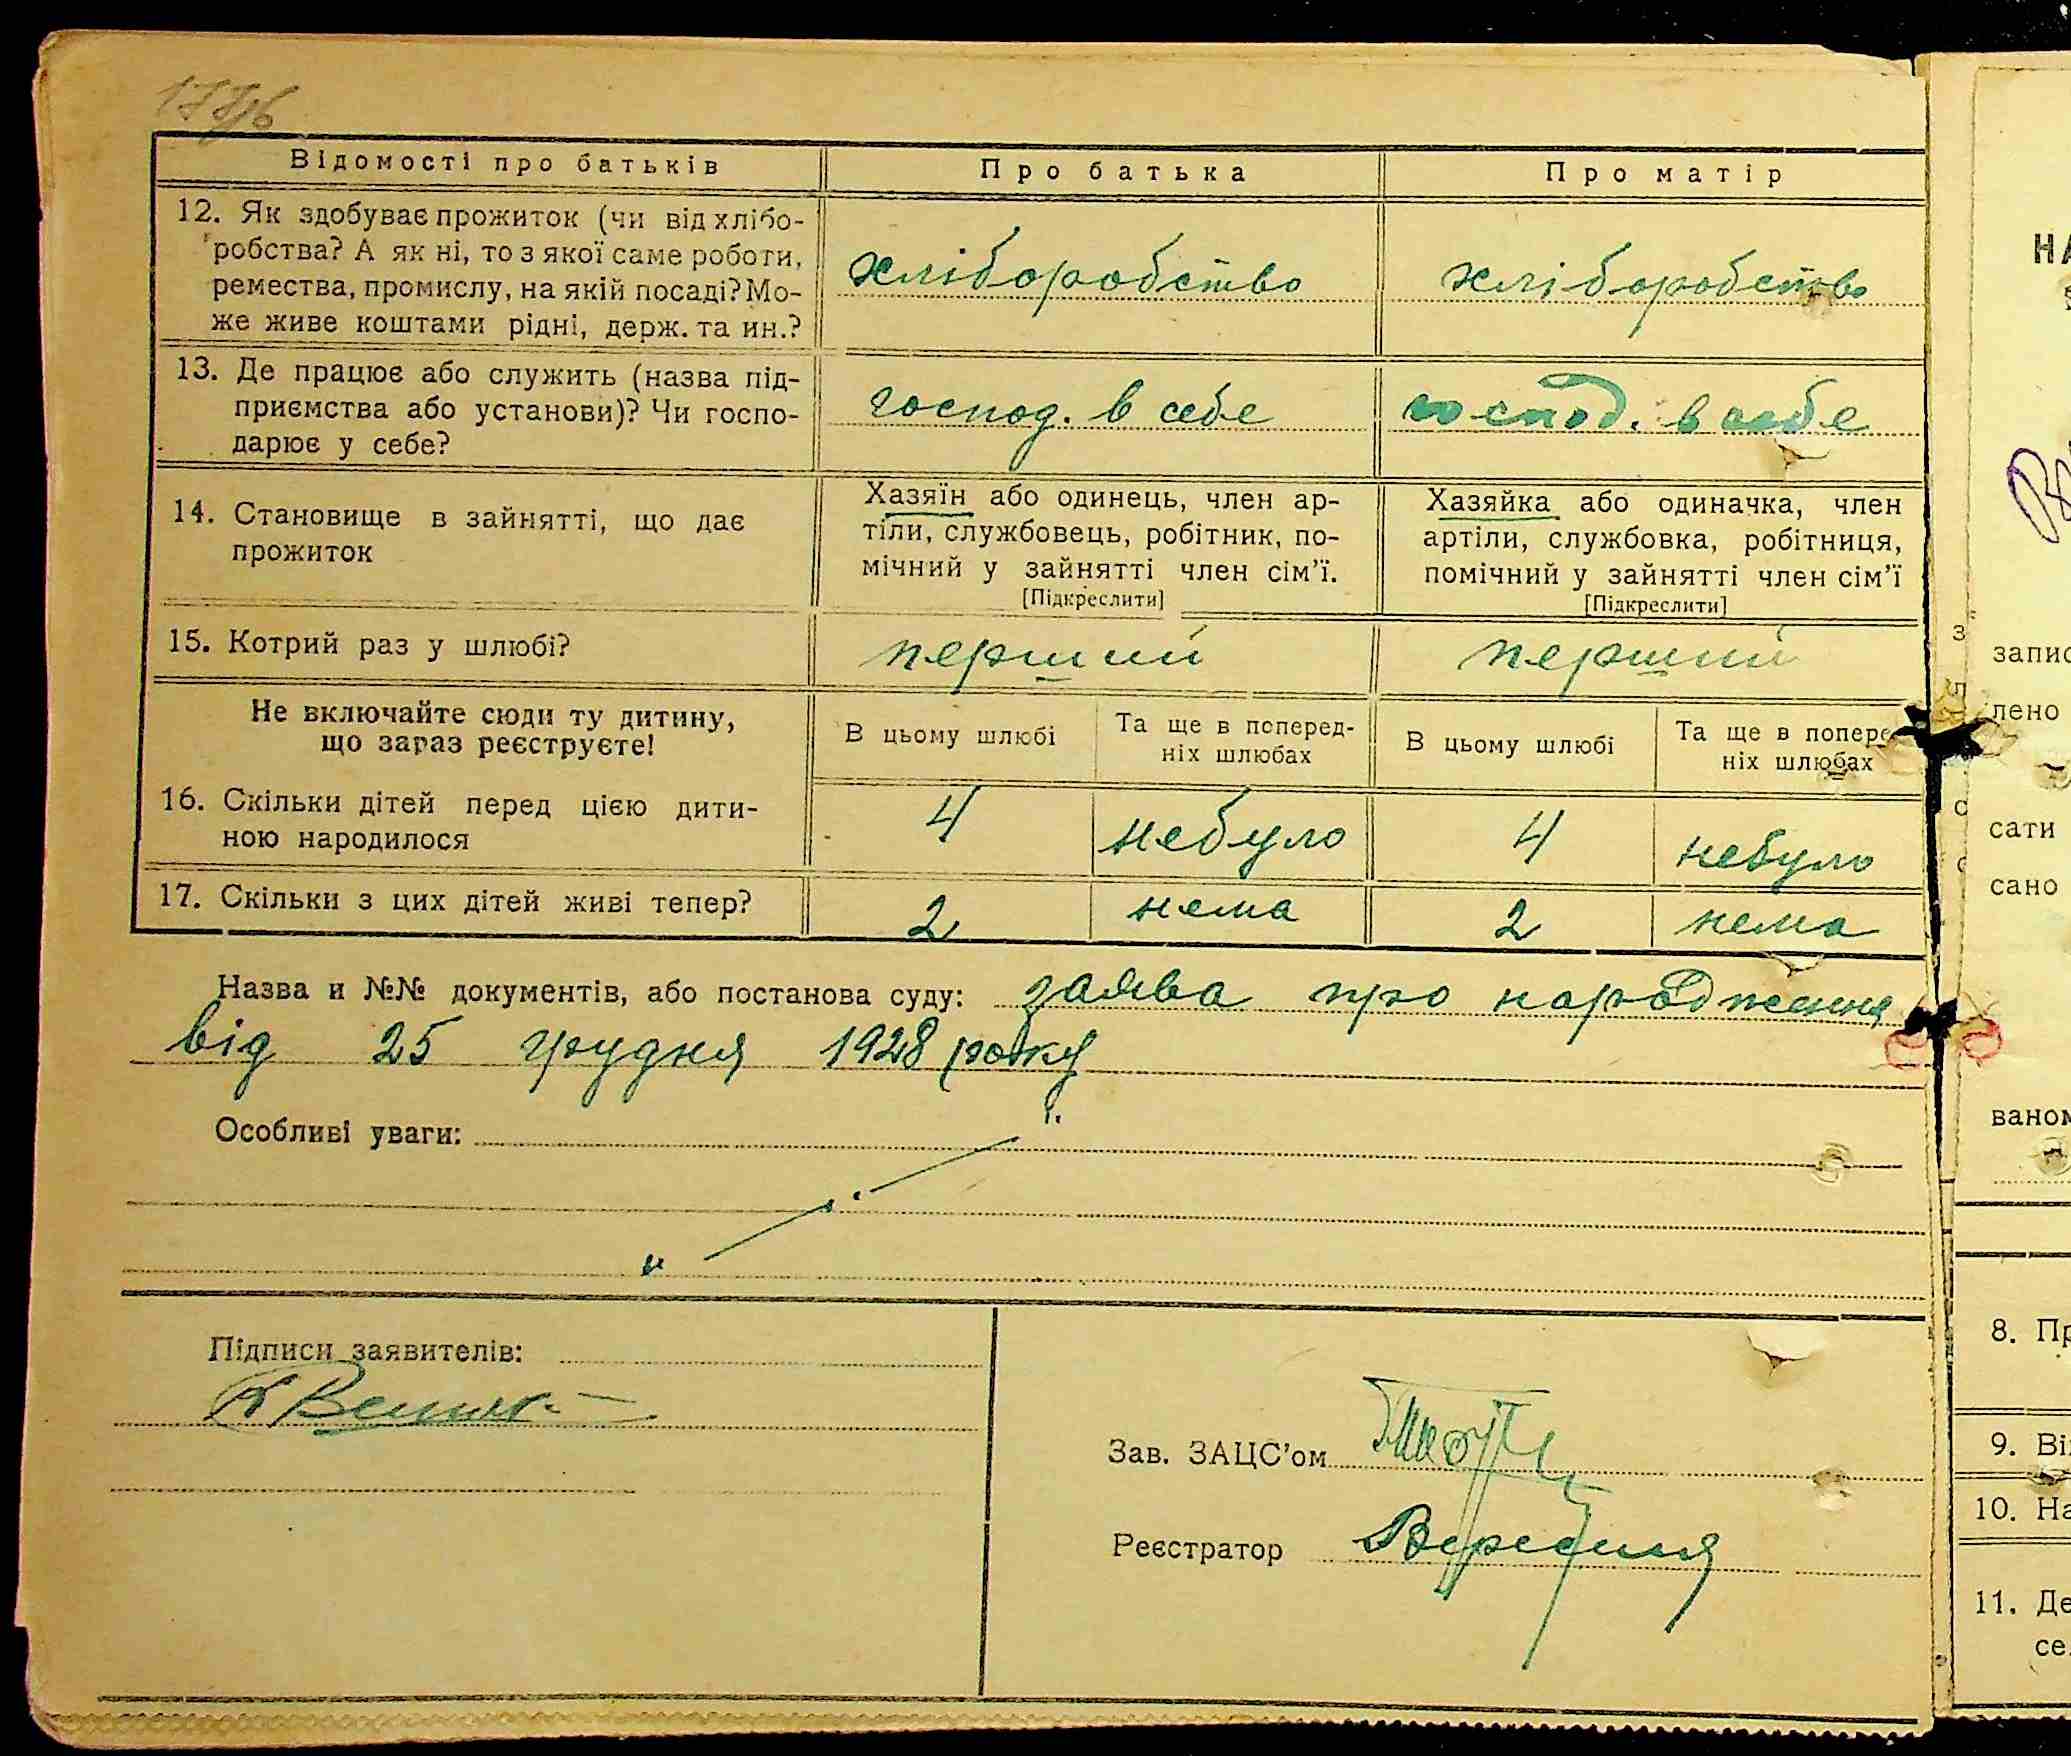 Відомості про батьків
Про батька
Про матір
12. Як здобуває прожиток (чи від хлібо-
робства? А як ні, то з якої саме роботи,
ремества, промислу, на якій посаді? Мо-
же живе коштами рідні, держ. та ин.?
хліборобство
хліборобство
13. Де працює або служить (назва під-
приємства або установи)? Чи госпо-
дарює у себе?
господ. в себе
господ. в себе
14. Становище в зайнятті, що дає
прожиток
Хазяїн або одинець, член ар-
тіли, службовець, робітник, по-
мічний у зайнятті член сім’ї.
[Підкреслити]
Хазяйка або одиначка, член
артіли, службовка, робітниця,
помічний у зайнятті член сім’ї
[Підкреслити]
15. Котрий раз у шлюбі?
перший
перший
Не включайте сюди ту дитину,
що зараз реєструєте!
В цьому шлюбі
Та ще в поперед-
ніх шлюбах
В цьому шлюбі
Та ще в попере
ніх шлюбах
16. Скільки дітей перед цією дити-
ною народилося
4
небуло
4
небуло
17. Скільки з цих дітей живі тепер?
2
нема
2
нема
Назва и №№ документів, або постанова суду: заява про народження
від 25 грудня 1928 року
Особливі уваги:
Підписи заявителів:
Зав. ЗАЦС’ом
Реєстратор
НА
запис
лено
сати
сано
ваном
8. Пр
9. Ві
10. На
11. Де
се